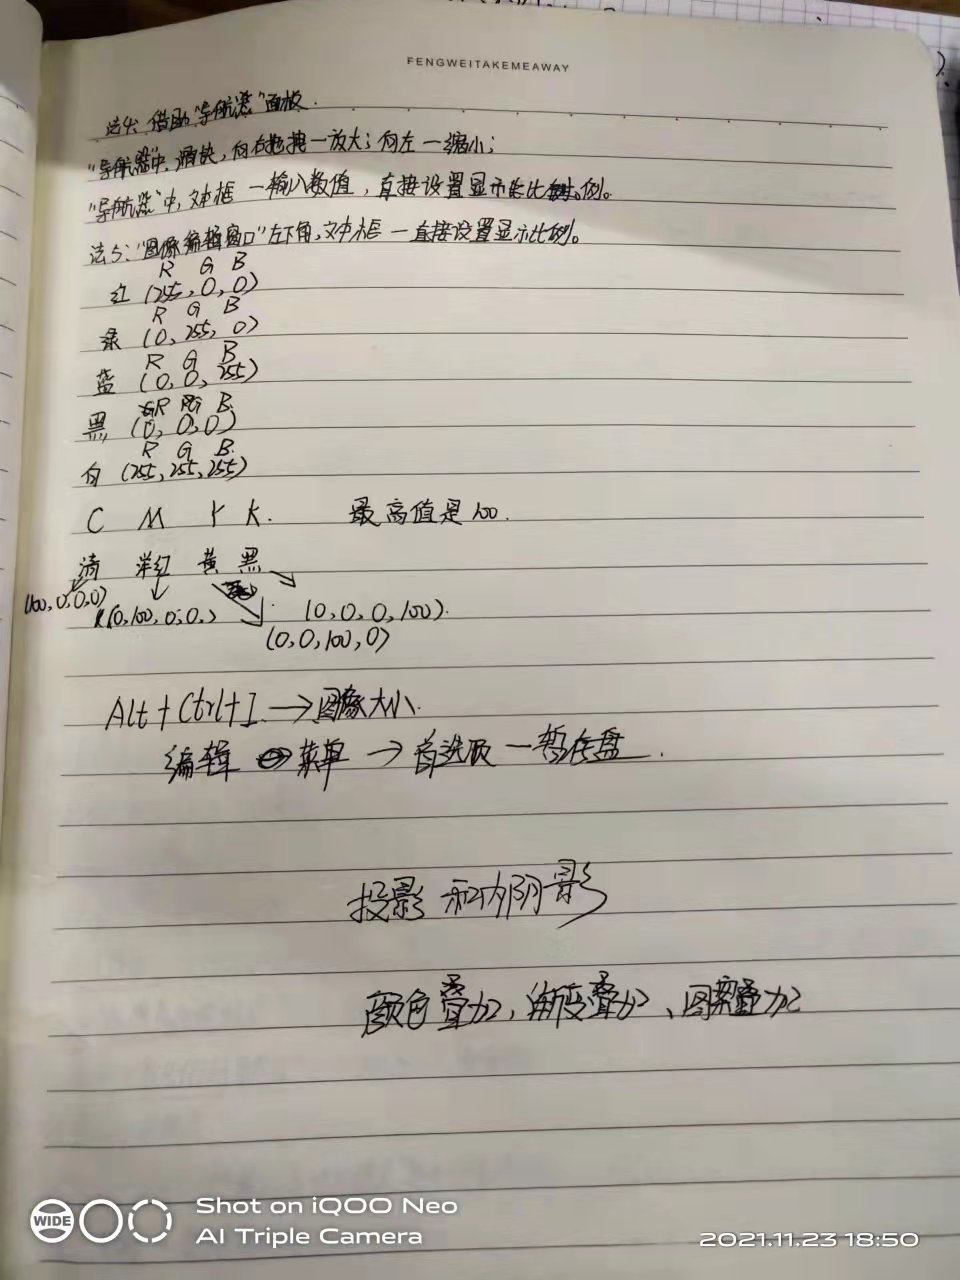 FENGWEITAKEMEAWAY
法4: 借助"导航器"面板.
"导航器"中, 滑块, 向右拖拽一放大; 向左一缩小;
"导航器"中, 文本框 一输入数值, 直接设置显示比例。
法5: "图像编辑窗口"左下角, 文本框 一直接设置显示比例。
R G B
红 (255, 0, 0)
R G B
绿 (0, 255, 0)
R G B
蓝 (0, 0, 255)
R G B
黑 (0, 0, 0)
R G B
白 (255, 255, 255)
C M Y K. 最高值是100.
青 洋红 黄 黑
(100, 0, 0, 0) (0, 100, 0, 0) (0, 0, 0, 100).
(0, 0, 100, 0)
Alt+Ctrl+I → 图像大小.
编辑 菜单 → 首选项 一暂存盘.
投影 和内阴影
颜色叠加, 渐变叠加、图案叠加
WIDE
Shot on iQOO Neo
AI Triple Camera
2021.11.23 18:50